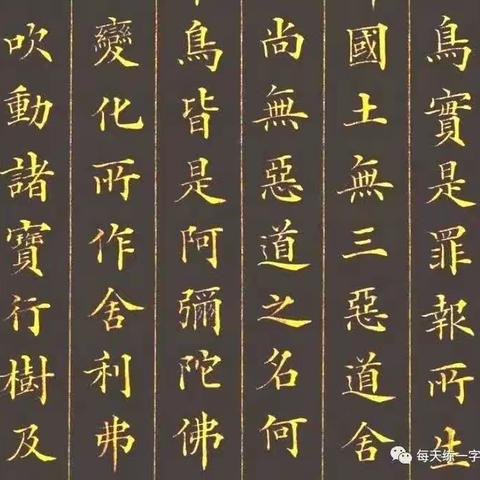 鳥實是罪報所生
國土無三惡道舍
尚無惡道之名何
鳥皆是阿彌陀佛
變化所作舍利弗
吹動諸寶行樹及
每天练一字